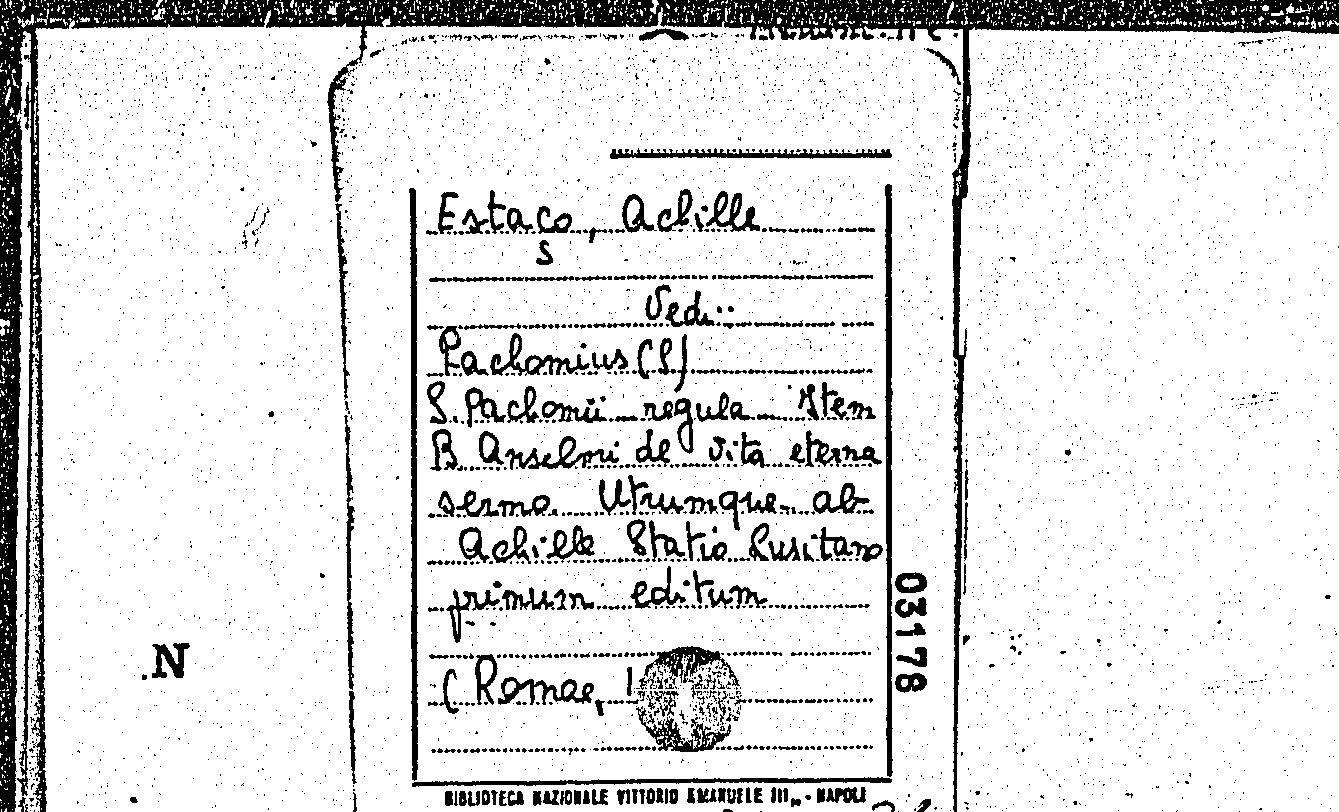 Estaco, Achille
s
Vedi..
Pachomius (S)
S. Pachomii regula Item
B Anselmi de vita eterna
sermo. Utrumque ab
Achille Statio Lusitano
primum editum
(Romae, 1
03178
.N
BIBLIOTECA NAZIONALE VITTORIO EMANUELE III,, - NAPOLI